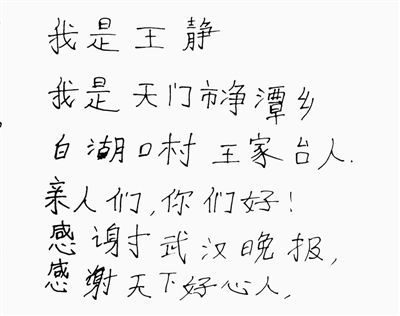 我是王静
我是天门市净潭乡
白湖口村王家台人.
亲人们,你们好!
感谢武汉晚报,
感谢天下好心人,